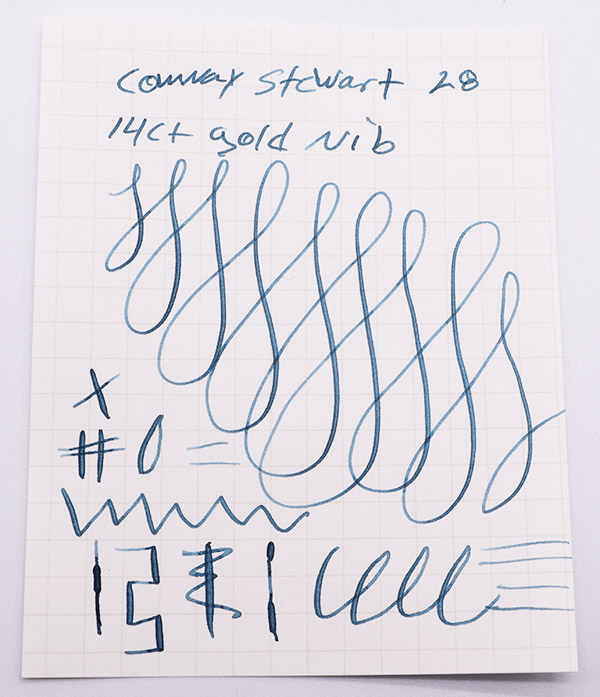 Conway Stewart 28
14ct gold Nib
X
# 0 =